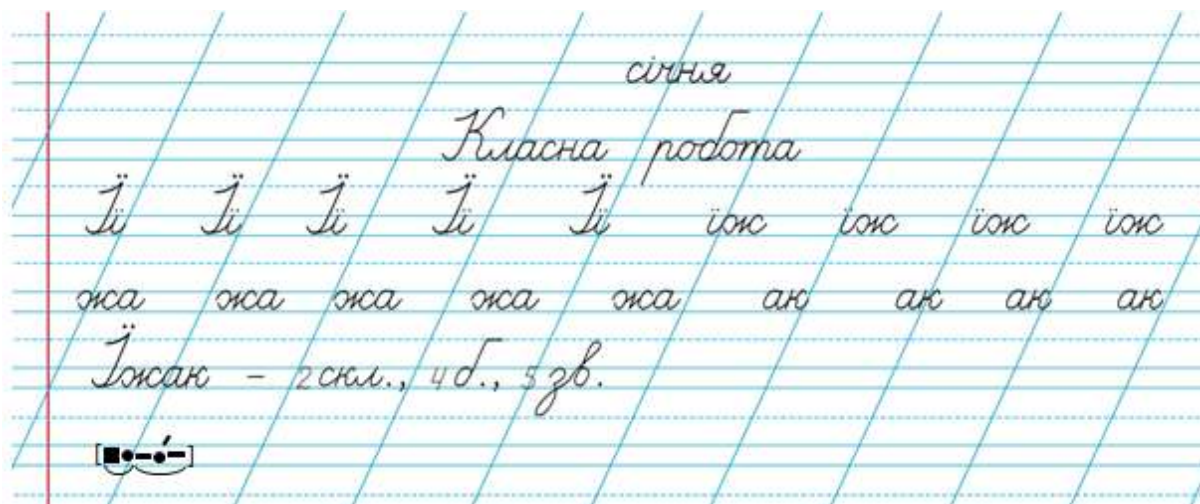 січня
Класна робота
Її Її Її Її Її їж їж їж їж
жа жа жа жа жа ак ак ак ак
Їжак - 2 скл., 4 б., 5 зв.